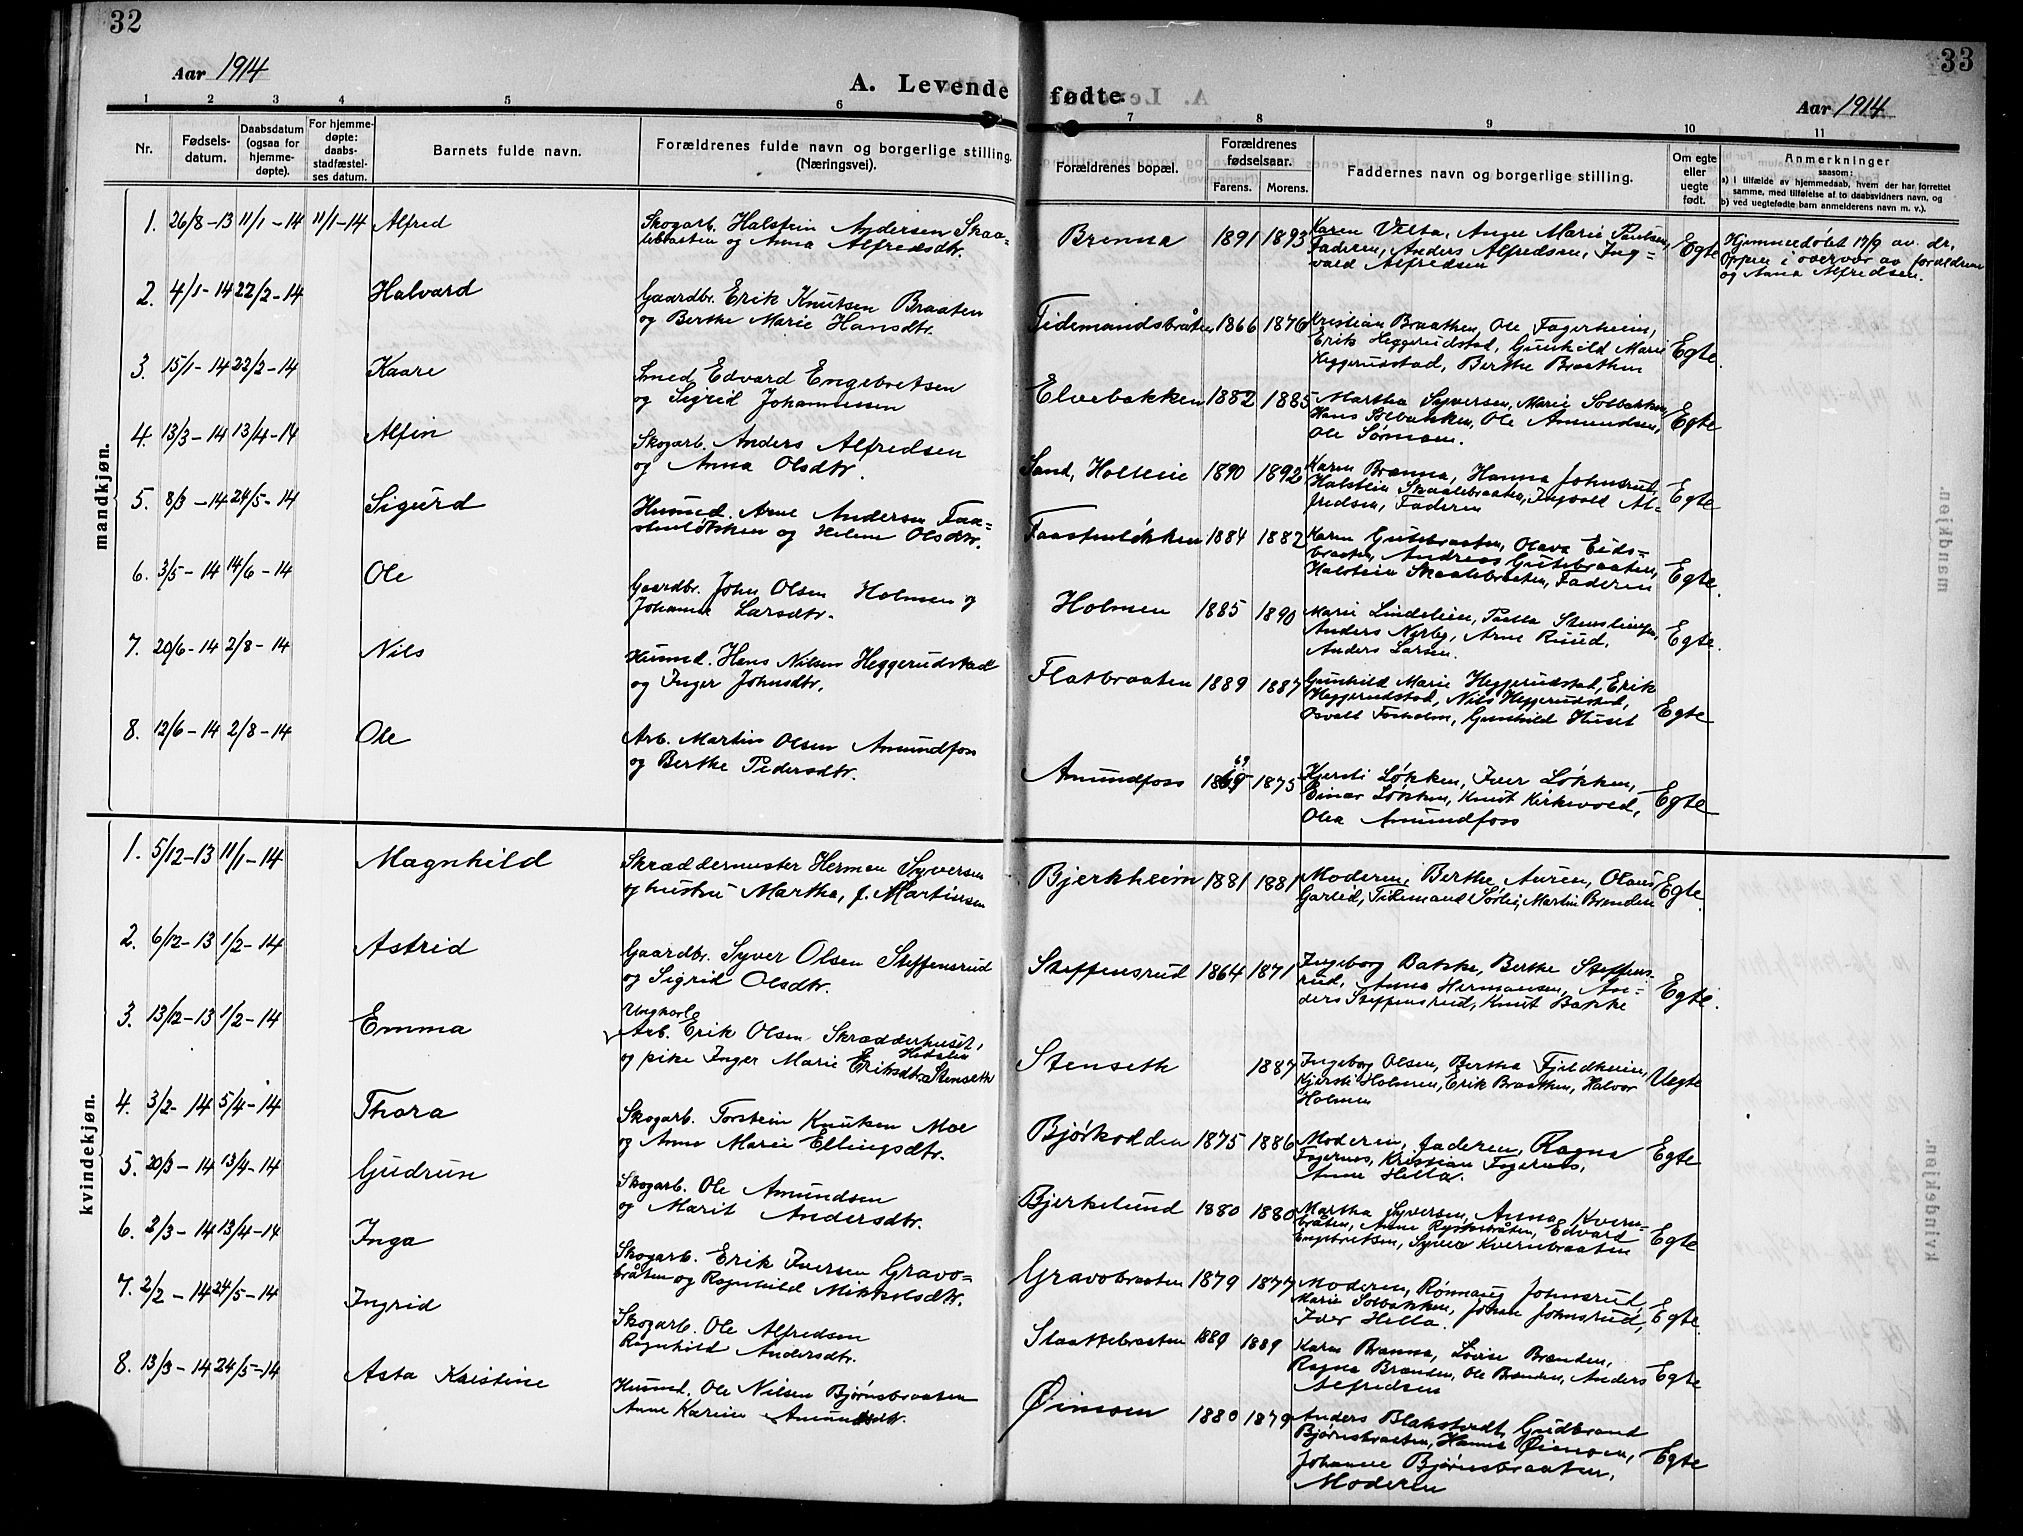 32
Aar 1914
A. Levende fødte.
33
Aar 1914
1 2 3 4 5 6 7 8 9 10 11
Nr.
Fødsels-
datum.
Daabsdatum
(ogsaa for
hjemme-
døpte).
For hjemme-
døpte:
daabs-
stadfæstel-
ses datum.
Barnets fulde navn.
Forældrenes fulde navn og borgerlige stilling.
(Næringsvei).
Forældrenes bopæl.
Forældrenes
fødselsaar.
Farens. Morens.
Faddernes navn og borgerlige stilling.
Om egte
eller
uegte
født.
Anmerkninger
saasom:
a) i tilfælde av hjemmedaab, hvem der har forrettet
samme, med tilføielse af to daabsvidners navn, og
b) ved uegtefødte barn anmelderens navn m. v.).
mandkjøn.
1. 26/8-13 11/1-14 11/1-14 Alfred
Skogarb. Halstein Andersen Skaa=
lebraaten og Anna Alfredsdtr.
Brenna 1891 1893
Karen Velta, Anne Marie Paulsen,
Faderen, Anders Alfredsen, Ing=
vald Alfredsen
Egte
Hjemmedøbt 17/9 av dr.
Oppen i overvær av forældrene
og Anna Alfredsen.
2. 4/1-14 22/2-14 Halvard
Gaardbr. Erik Knutsen Braaten
og Berthe Marie Hansdtr.
Tidemandsbråten 1866 1876
Kristian Braathen, Ole Fagerheim,
Erik Heggerudstad, Gunhild Marie
Heggerudstad, Berthe Braathen
Egte.
3. 15/1-14 22/2-14 Kaare
Smed Edvard Engebretsen
og Sigrid Johannessen
Elvebakken 1882 1885
Martha Syversen, Marie Solbakken,
Hans Solbakken, Ole Amundsen,
Ole Sørmoen.
Egte
4. 13/3-14 13/4-14 Alfin
Skogarb. Anders Alfredsen
og Anna Olsdtr.
Sand, Holleie 1890 1892
Karen Brenna, Hanna Johnsrud,
Halstein Skaalebraaten, Ingvald Al-
fredsen, Faderen
Egte
5. 8/3-14 24/5-14 Sigurd
Husmd. Arne Andersen Faa=
stenløkken og Helene Olsdtr.
Faastenløkken 1884 1882
Karen Gutebraaten, Olava Eids=
braaten, Andreas Gutebraaten,
Halstein Skaalebraaten, Faderen
Egte.
6. 3/5-14 14/6-14 Ole
Gaardbr. John Olsen Holmen og
Johanne Larsdtr.
Holmen 1885 1890
Marie Lindelien, Paella
Anders Nerby, Arne Ruud,
Anders Larsen.
Egte.
7. 20/6-14 2/8-14 Nils
Husmd. Hans Nilsen Heggerudstad
og Inger Johnsdtr.
Flatbraaten 1889 1887
Gunhild Marie Heggerudstad, Erik
Heggerudstad, Nils Heggerudstad,
Osvald Forholm, Gunhild Huset
Egte
8. 12/6-14 2/8-14 Ole
Arb. Martin Olsen Amundfoss
og Berthe Pedersdtr.
Amundfoss 1869 1875
Kjersti Løkken, Iver Løkken,
Einar Løkken, Knut Kirkevold,
Olea Amundfoss
Egte
kvindekjøn.
1. 5/12-13 11/1-14 Magnhild
Skræddermester Herman Syversen
og hustru Martha, f. Martinsen
Bjerkheim 1881 1881
Moderen, Berthe Auren, Olaus
Garlid, Tidemand Sørlie, Martin Brenden
Egte.
2. 6/12-13 1/2-14 Astrid
Gaardbr. Syver Olsen Steffensrud
og Sigrid Olsdtr.
Steffensrud 1864 1871
Ingeborg Bakke, Berthe Steffens-
rud, Anna Hermansen, An=
ders Steffensrud, Knut Bakke
Egte.
3. 13/12-13 1/2-14 Emma
Ungkarl
Arb. Erik Olsen Skrædderhuset,
Hedalen
og pike Inger Marie Eriksdtr. Stenseth
Stenseth 1887
Ingeborg Olsen, Bertha Fjeldheim,
Kjersti Holmen, Erik Braathen, Halvor
Holmen
Uegte
4. 3/2-14 5/4-14 Thora
Skogarb. Torstein Knutsen Moe
og Anne Marie Ellingsdtr.
Bjørkodden 1875 1886
Moderen, faderen, Ragna
Fagernes, Kristian Fagernes,
Anne Hella.
Egte
5. 20/3-14 13/4-14 Gudrun
Skogarb. Ole Amundsen
og Marit Andersdtr.
Bjerkelund 1880 1880
Martha Syversen, Anna Kvern-
bråten, Anne Ryskebråten, Edvard
Engebretsen, Syver Kvernbraaten
Egte
6. 3/3-14 13/4-14 Inga
Skogarb. Erik Iversen Gravo=
bråten og Ragnhild Mikkelsdtr.
Gravobraaten 1879 1877
Moderen, Rønnaug Johnsrud,
Marie Solbakken, Johan Johnsrud,
Iver Hella.
Egte.
7. 2/2-14 24/5-14 Ingrid
Skogarb. Ole Alfredsen
Ragnhild Andersdtr.
Slaattebraaten 1889 1889
Karen Brenna, Lovise Brenden,
Ragna Brenden, Ole Brenden, Anders
Alfredsen
Egte
8. 13/3-14 24/5-14 Asta Kristine
Husmd. Ole Nilsen Bjørnsbraaten
Anne Karine Amundsdtr.
Øimoen 1880 1879
Anders Blakstvedt, Gudbrand
Bjørnsbraaten, Hanna Øimoen,
Johanne Bjørnsbraaten,
Moderen
Egte